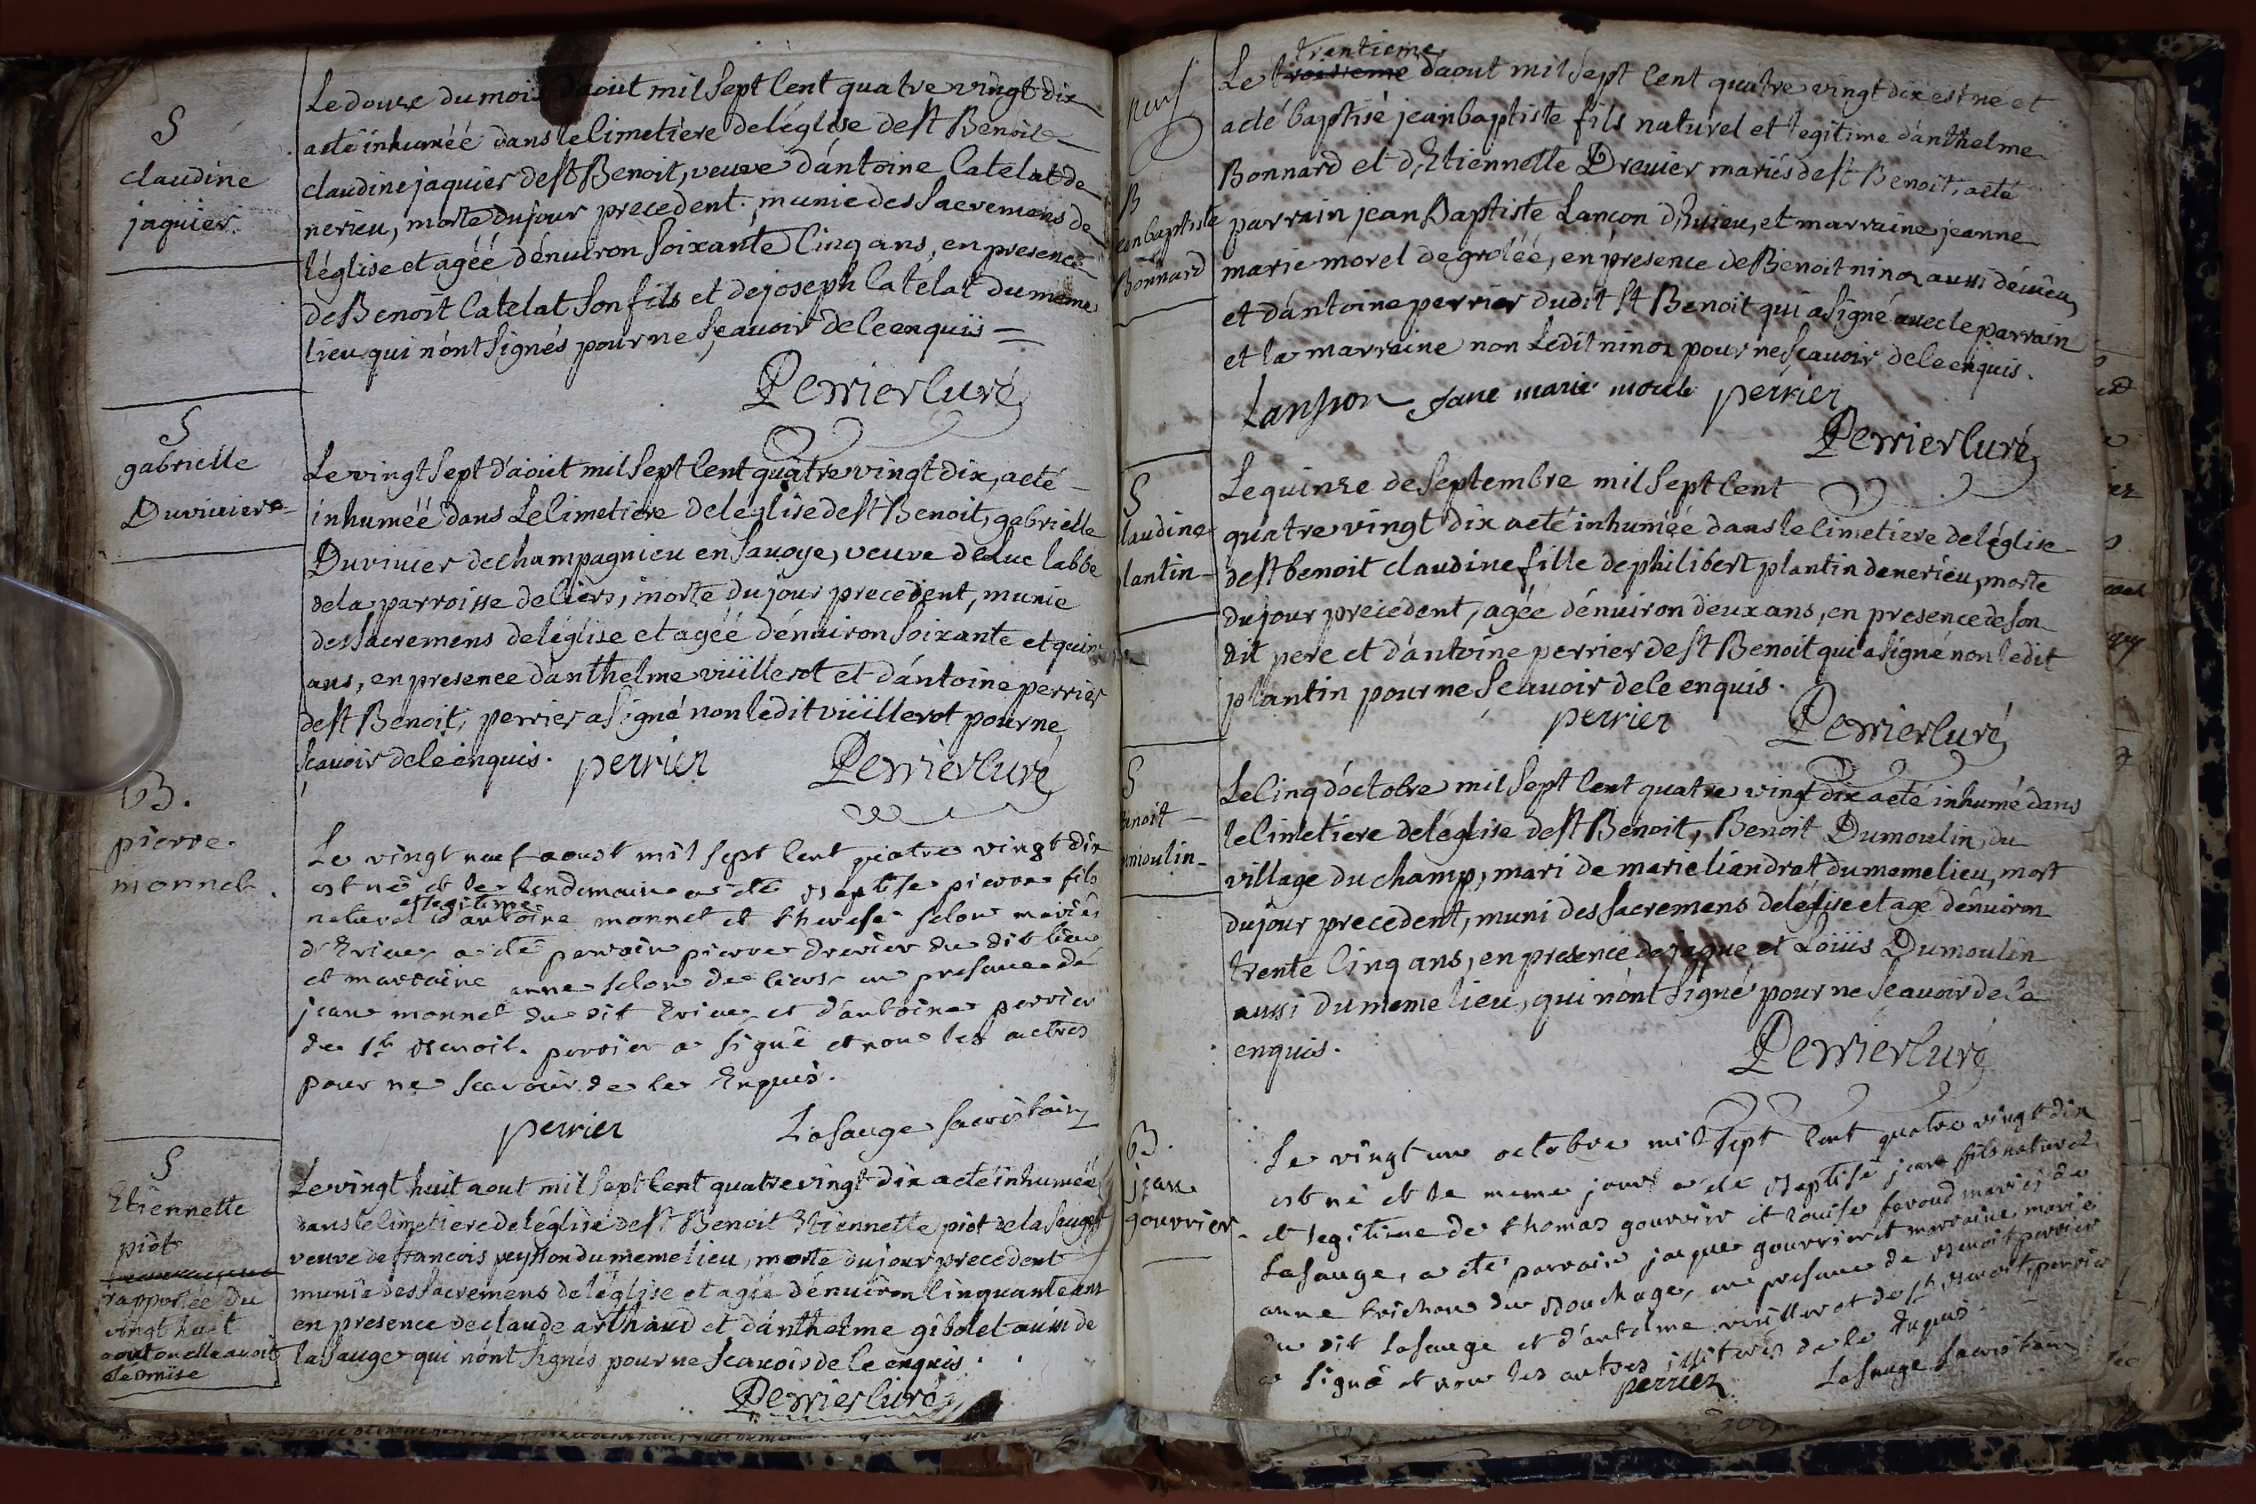 S
claudine
jaquier.
Le douze du mois d'aout mil sept cent quatre vingt dix
a eté inhumée dans le cimetière de léglise de st Benoit
claudine jaquier de st Benoit, veuve d'antoine Catelat de
nerieu, morte du jour precedent; munie des sacremens de
léglise et agéé dénviron soixante cinq ans, en presence
de Benoit Catelat son fils et de joseph Catelat du meme
lieu qui n'ont signés pour ne sçavoir de ce enquis =
Perrier curé
S
gabrielle
Duvivier
Le vingt sept d'aout mil sept cent quatre vingt dix, a eté
inhuméé dans Le cimetiere de leglise de st Benoit, gabrielle
Duvivier de champagnieu en savoye, veuve de Luc labbe
de la parroisse de liers, morte du jour precedent, munie
des sacremens de léglise et agéé dénviron soixante et quin
ans, en presence d'anthelme viüllerot et d'antoine perrier
de st Benoit; perrier a signé non ledit viüllerot pour ne
sçavoir de ce enquis. perrier Perrier curé
B.
pierre
monnet.
Le vingt neuf aoust mil sept cent quatre vingt dix
est né et le lendemain a été Baptisé pierre fils
naturel et legitime d'antoine monnet et therese selon mariés
d'Evieu, a été parrain pierre drevier du dit lieu
et marraine anne selon de liers en presence de
jean monnet du dit Evieu et d'antoine perrier
de st Benoit. perrier a signé et non les autres
pour ne scavoir de ce Enquis.
perrier Lasauge sacristain
S
Etiennette
piot
rapportée du
vingt huit
aout ou elle avoit
été omise
Le vingt huit aout mil sept cent quatre vingt dix a eté inhuméé
dans le cimetiere de léglise de st Benoit Etiennette piot de la sauge
veuve de francois peysson du meme lieu, morte du jour precedent
munie des sacremens de léglise et agéé dénviron cinquante ans
en presence de claude arthaud et d'anthelme gibolet aussi de
lasauge qui n'ont signés pour ne scavoir de ce enquis.
Perrier curé
B
jean baptiste
Bonnard
trentieme
Le troisieme d'aout mil sept cent quatre vingt dix est né et
a eté baptisé jean baptiste fils naturel et legitime d'anthelme
Bonnard et d'Etiennette Drevier mariés de st Benoit, a eté
parrain jean Baptiste Lançon d'huieu, et marraine jeanne
marie morel de groléé, en presence de Benoit ninoz aussi dévieu,
et d'antoine perrier dudit st Benoit qui a signé avec le parrain
et la marraine non ledit ninoz pour ne sçavoir de ce enquis.
Lanson jane marie morele perrier
Perrier curé
S
laudine
plantin
Le quinze de septembre mil sept cent
quatre vingt dix a eté inhuméé dans le cimetiere de léglise
de st benoit claudine fille de philibert plantin de nerieu, morte
du jour precedent, agéé dénviron deux ans, en presence de son
dit pere et d'antoine perrier de st Benoit qui a signé non ledit
plantin pour ne sçavoir de ce enquis.
perrier Perrier curé
S
benoit
moulin
Le cinq d'octobre mil sept cent quatre vingt dix a eté inhumé dans
le cimetiere de léglise de st Benoit, Benoit Dumoulin, du
village du champ, mari de marie liandrat du meme lieu, mort
du jour precedent, muni des sacremens de léglise et agé dénviron
trente cinq ans, en presence de jaque et Loüis Dumoulin
aussi du meme lieu, qui n'ont signé pour ne scavoir de ce
enquis. Perrier curé
B.
jean
gouvrier
Le vingt un octobre mil sept cent quatre vingt dix
est né et le meme jour a été Baptisé jean fils naturel
et legitime de thomas gouvrier et Louise favoud mariés de
Lasauge, a été parrain jaque gouvrier et marraine marie
anne trichon du Bouchage, en presence de Benoit perrier
du dit Lasauge et d'antelme viüllerot de st Benoit, perrier
a signé et non les autres illiteres de ce Enquis.
perrier Lasauge Sacristain